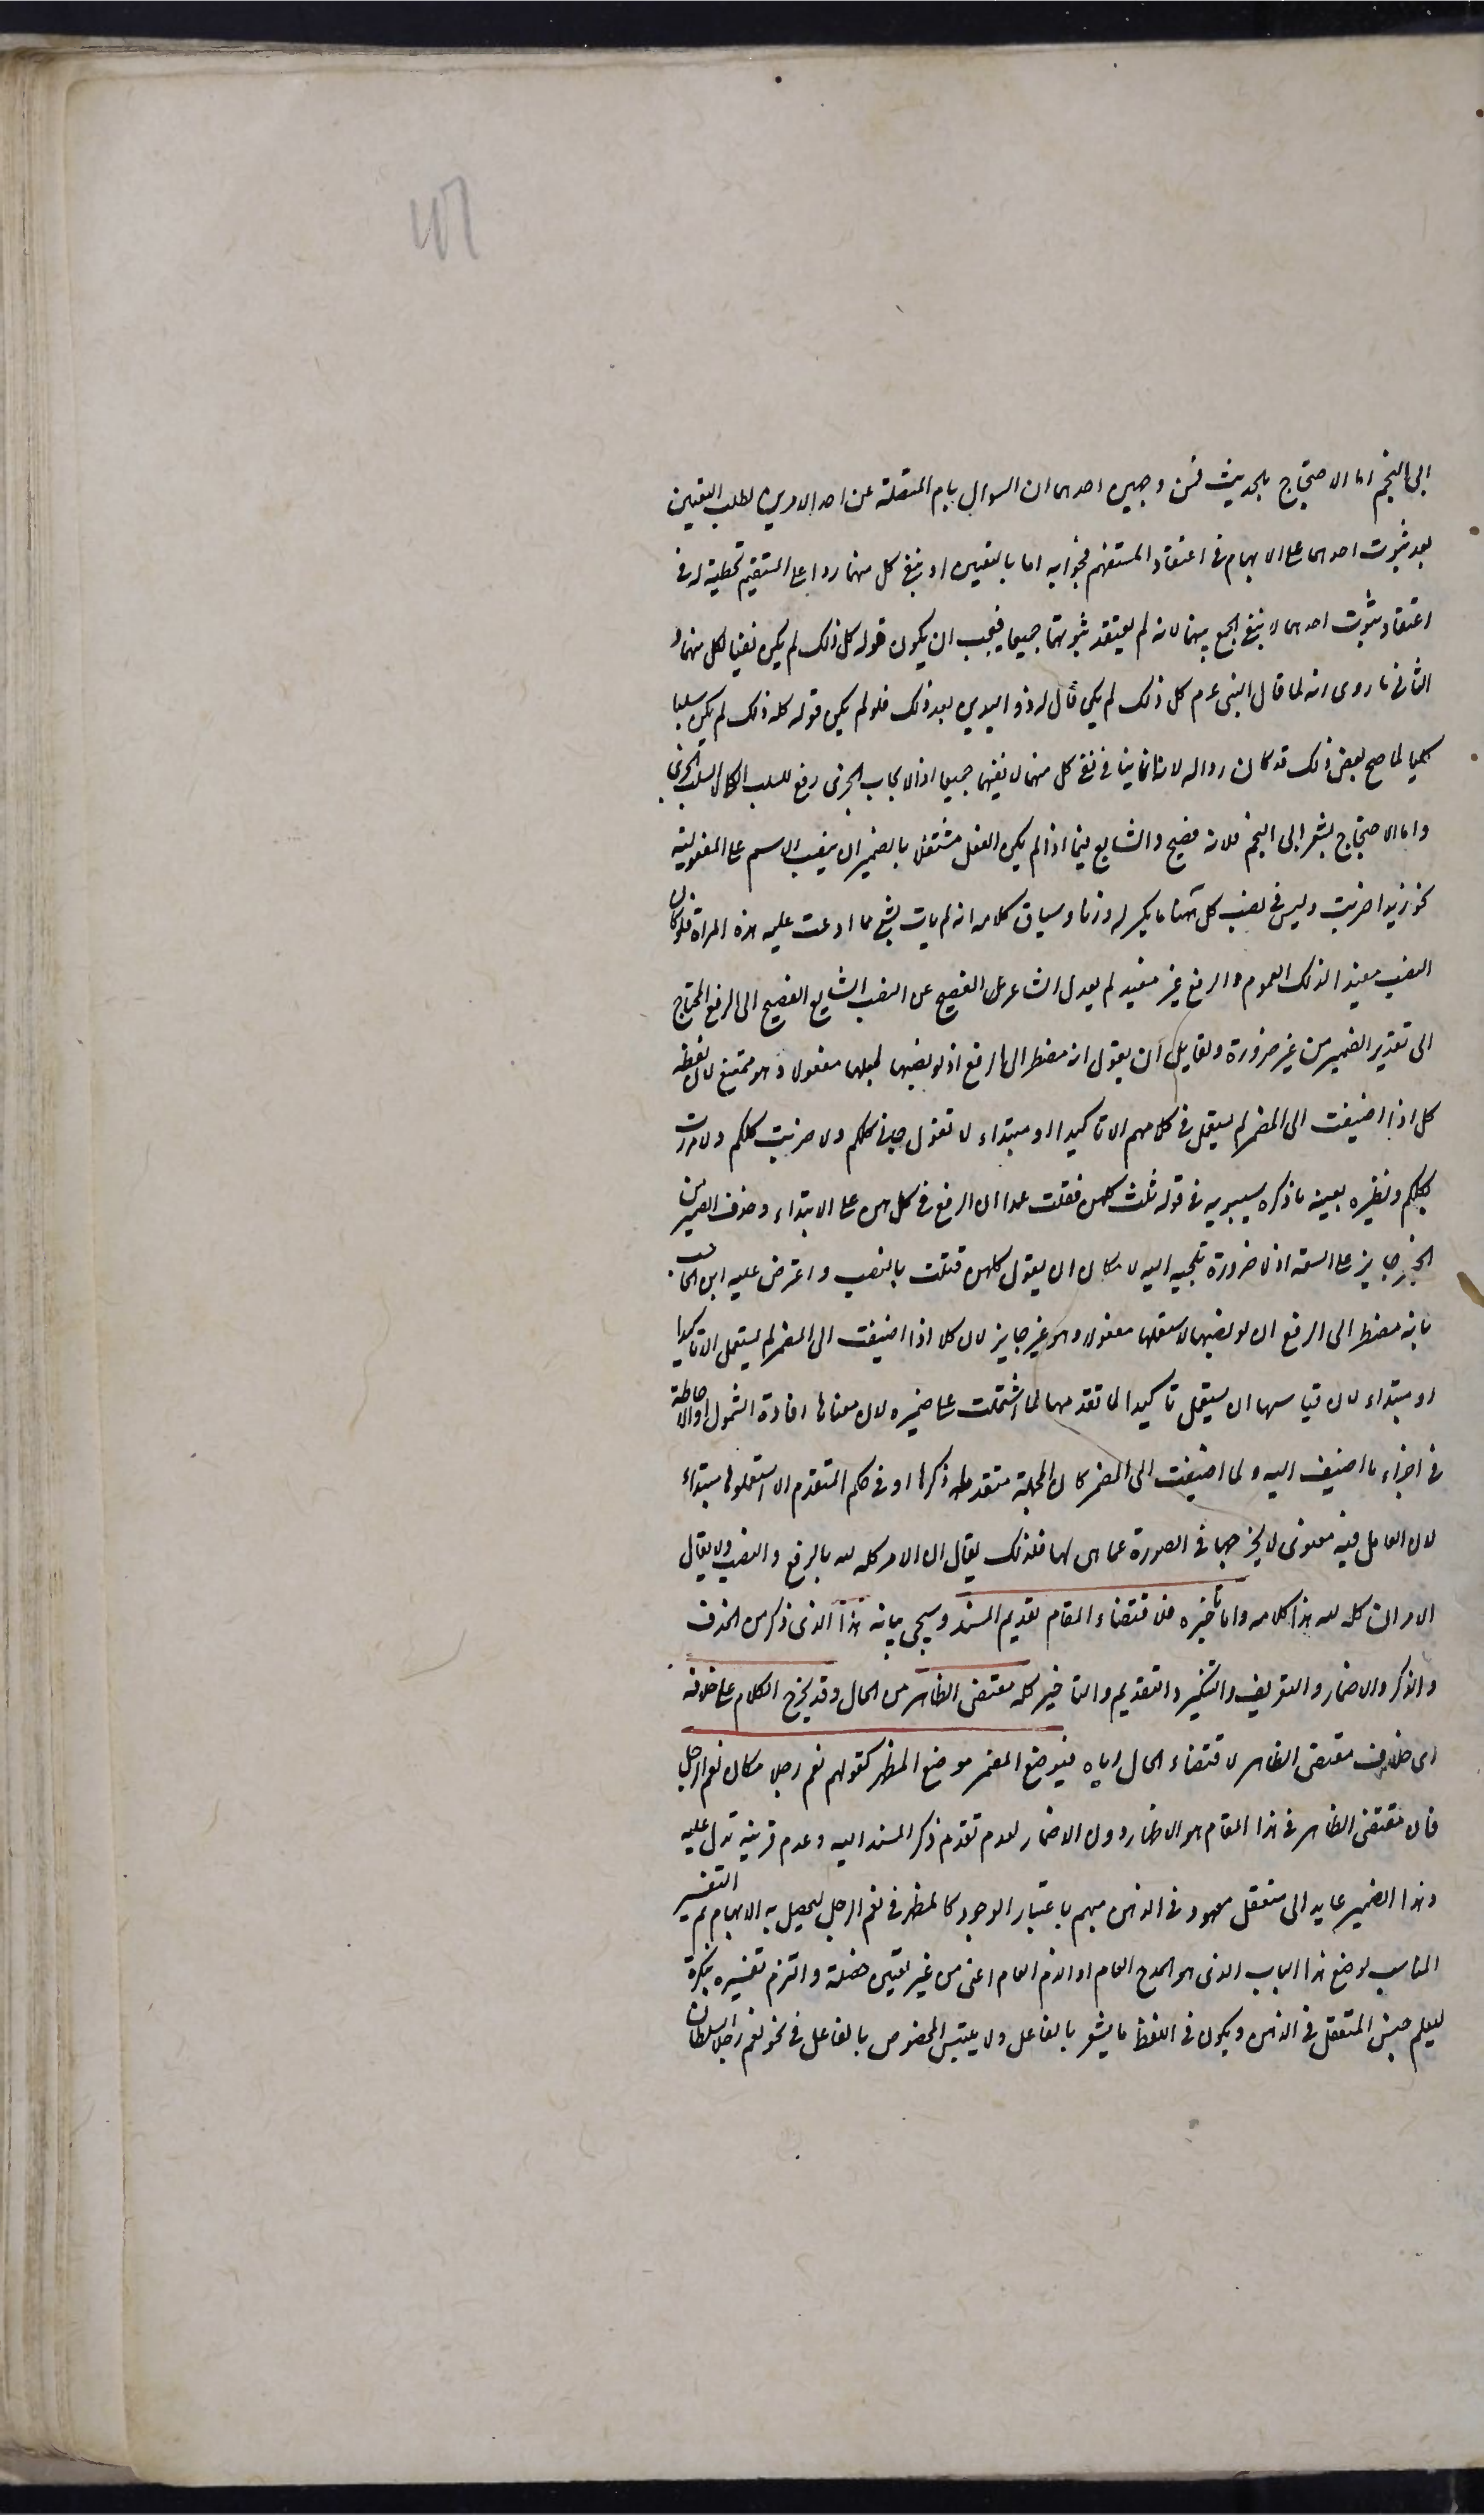 ٤٦
ابى النجم اما الاحتجاج بالحديث فمن وجهين احدهما ان السوال بام المتصلة عن احد الامرين لطلب التعيين
بعد ثبوت احدهما على الابهام فى اعتقاد المستفهم فجوابه اما بالتعيين او بنفى كل منهما ردا على المستفهم تخطية له فى
اعتقاد ثبوت احدهما لا بنفى الجمع بينهما لانه لم يعتقد ثبوتهما جميعا فيجب ان يكون قوله كل ذلك لم يكن نفيا لكل منهما و
الثانى ما روى انه لما قال النبى عم كل ذلك لم يكن قال له ذو اليدين بعد ذلك فلو لم يكن قوله كله ذلك لم يكن سلبا
كليا لما صح بعض ذلك قد كان ردا له لانه انما ينافى نفى كل منهما لا نفيهما جميعا اذ الايجاب الجزئى رفع للسلب الكلى لا للسلب الجزئى
واما الاحتجاج بشعر ابى النجم فلانه فصيح والشايع فيما اذا لم يكن الفعل مشتغلا بالضمير ان ينصب الاسم على المفعولية
نحو زيدا ضربت وليس فى نصب كل ههنا ما يكسر له وزنا وسياق كلامه انه لم يات بشى مما ادعت عليه هذه المراة فلو كان
النصب مفيدا لذلك العموم والرفع غير مفيد لم يعدل الشاعر الفصيح عن النصب الشايع الفصيح الى الرفع المحتاج
الى تقدير الضمير من غير ضرورة ولقايل ان يقول انه مضطر الى الرفع اذ لو نصبها لجعلها مفعولا وهو ممتنع لان لفظة
كل اذا اضيفت الى المضمر لم يستعمل فى كلامهم الا تاكيدا او مبتداء لا تقول جاءنى كلكم ولا ضربت كلكم ولا مررت
بكلكم ونظيره بعينه ما ذكره سيبويه فى قوله ثلث كلهن قتلت عمدا ان الرفع فى كلهن على الابتداء وحذف الضمير من
الخبر جايز على السعة اذ لا ضرورة تلجيه اليه لامكان ان يقول كلهن قتلت بالنصب واعترض عليه ابن الحاجب
بانه مضطر الى الرفع اذ لو نصبها لاستعملها مفعولا وهو غير جايز لان كلا اذا اضيفت الى المضمر لم يستعمل الا تاكيدا
او مبتداء لان قياسها ان يستعمل تاكيدا لما تقدمها لما اشتملت على ضميره لان معناها افادة الشمول والاحاطة
فى اجزاء ما اضيف اليه ولما اضيفت الى المضمر كان الجملة متقدمة ذكرها او فى حكم المتقدم الا استعملوها مبتداء
لان العامل فيه معنوى لا يخرجها فى الصورة عما هى لها فلذلك يقال ان الامر كله لله بالرفع والنصب ولا يقال
الامر ان كله لله هذا كلامه واما تاخيره فلاقتضاء المقام تقديم المسند وسيجى بيانه هذا الذى ذكر من الحذف
والذكر والاضمار والتعريف والتنكير والتقديم والتاخير كله مقتضى الظاهر من الحال وقد يخرج الكلام على خلافه
اى خلاف مقتضى الظاهر لاقتضاء الحال اياه فيوضع المضمر موضع المظهر كقولهم نعم رجلا مكان نعم الرجل
فان مقتضى الظاهر فى هذا المقام هو الاظهار دون الاضمار لعدم تقدم ذكر المسند اليه وعدم قرينة تدل عليه
وهذا الضمير عايد الى متعقل معهود فى الذهن مبهم باعتبار الوجود كالمظهر فى نعم الرجل ليحصل به الابهام ثم التفسير
المناسب لوضع هذا الباب الذى هو المدح العام او الذم العام اعنى من غير تعيين خصلة والتزم تفسيره بنكرة
ليعلم جنس المتعقل فى الذهن ويكون فى اللفظ ما يشعر بالفاعل ولا يلتبس المخصوص بالفاعل فى نحو نعم رجلا السلطان